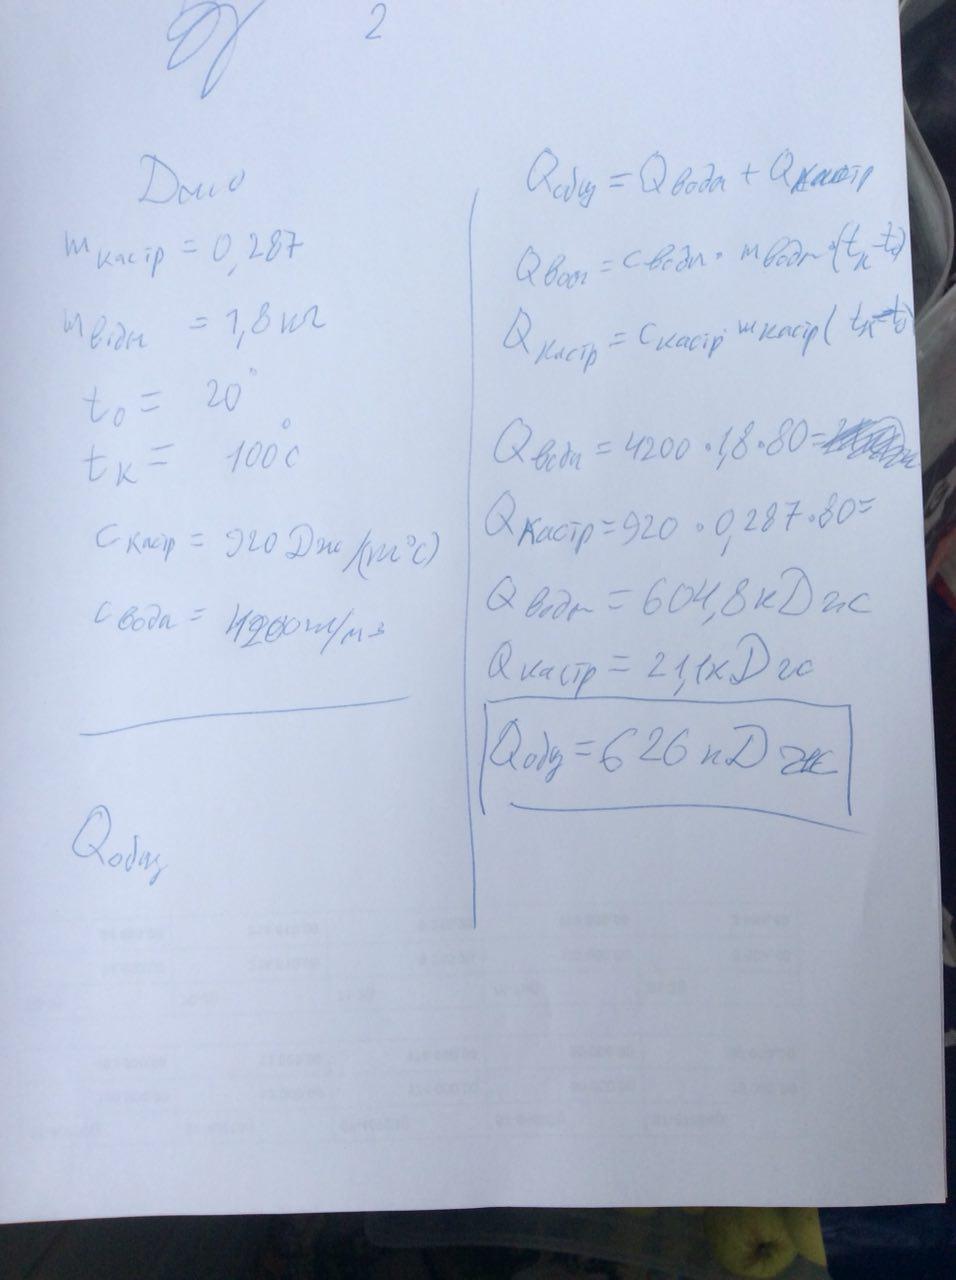 2
Дано
m кастр = 0,287
m воды = 1,8 кг
t₀ = 20°
tк = 100°C
c кастр = 920 Дж/(кг°C)
c вода =
Q общ
Q общ = Q вода + Q кастр
Q воды = c воды · m воды · (tк - t₀)
Q кастр = c кастр · m кастр (tк - t₀)
Q вода = 4200 · 1,8 · 80 =
Q кастр = 920 · 0,287 · 80 =
Q воды = 604,8 кДж
Q кастр = 21,1 кДж
Q общ = 626 кДж